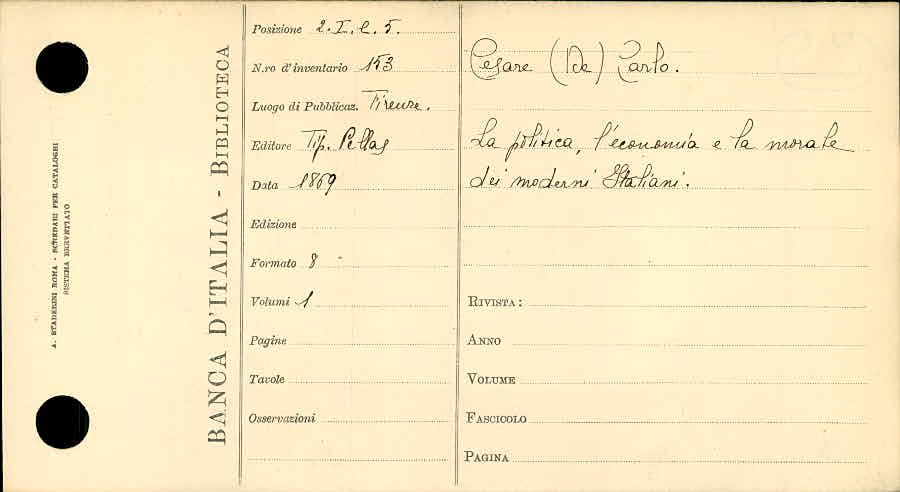 A. STADERINI ROMA - SCHEDARI PER CATALOGHI
SISTEMA BREVETTATO
BANCA D'ITALIA - BIBLIOTECA
Posizione 2. I. C. 5.
N.ro d'inventario 153
Luogo di Pubblicaz. Firenze.
Editore Tip. Pellas
Data 1869
Edizione
Formato 8
Volumi 1
Pagine
Tavole
Osservazioni
Cesare (De) Carlo.
La politica, l'economia e la morale
dei moderni Italiani.
RIVISTA:
ANNO
VOLUME
FASCICOLO
PAGINA